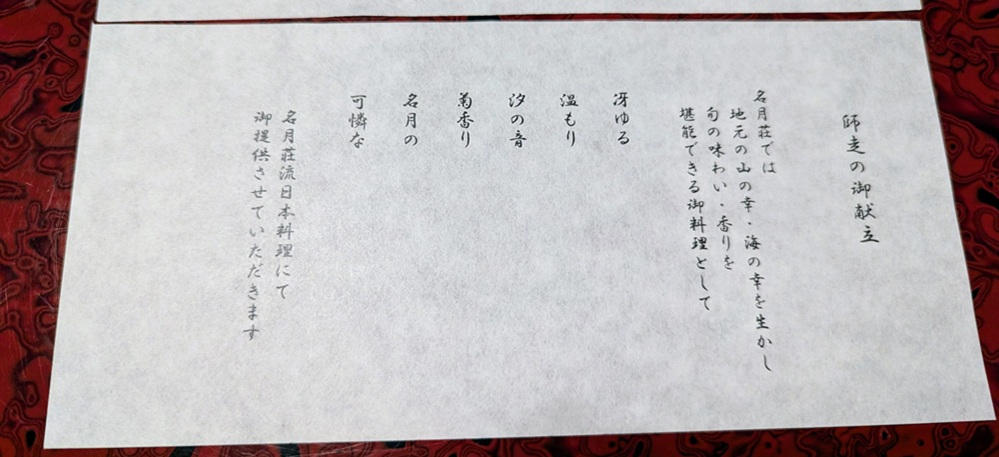 師走の御献立
名月荘では
地元の山の幸・海の幸を生かし
旬の味わい・香りを
堪能できる御料理として
冴ゆる
温もり
汐の音
菊香り
名月の
可憐な
名月荘流日本料理にて
御提供させていただきます